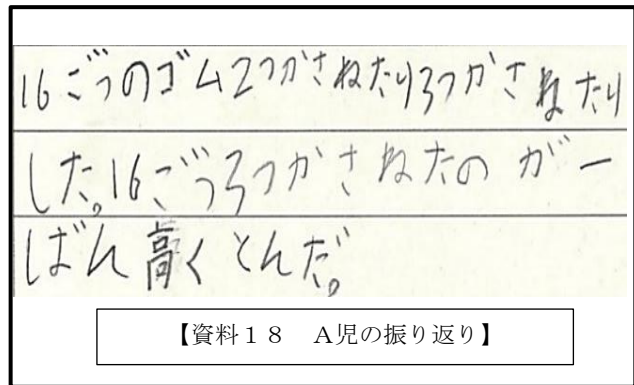 16ごうのゴム2つかさねたり3つかさねたり
した。16ごう3つかさねたのが一
ばん高くとんだ。
【資料18 A児の振り返り】